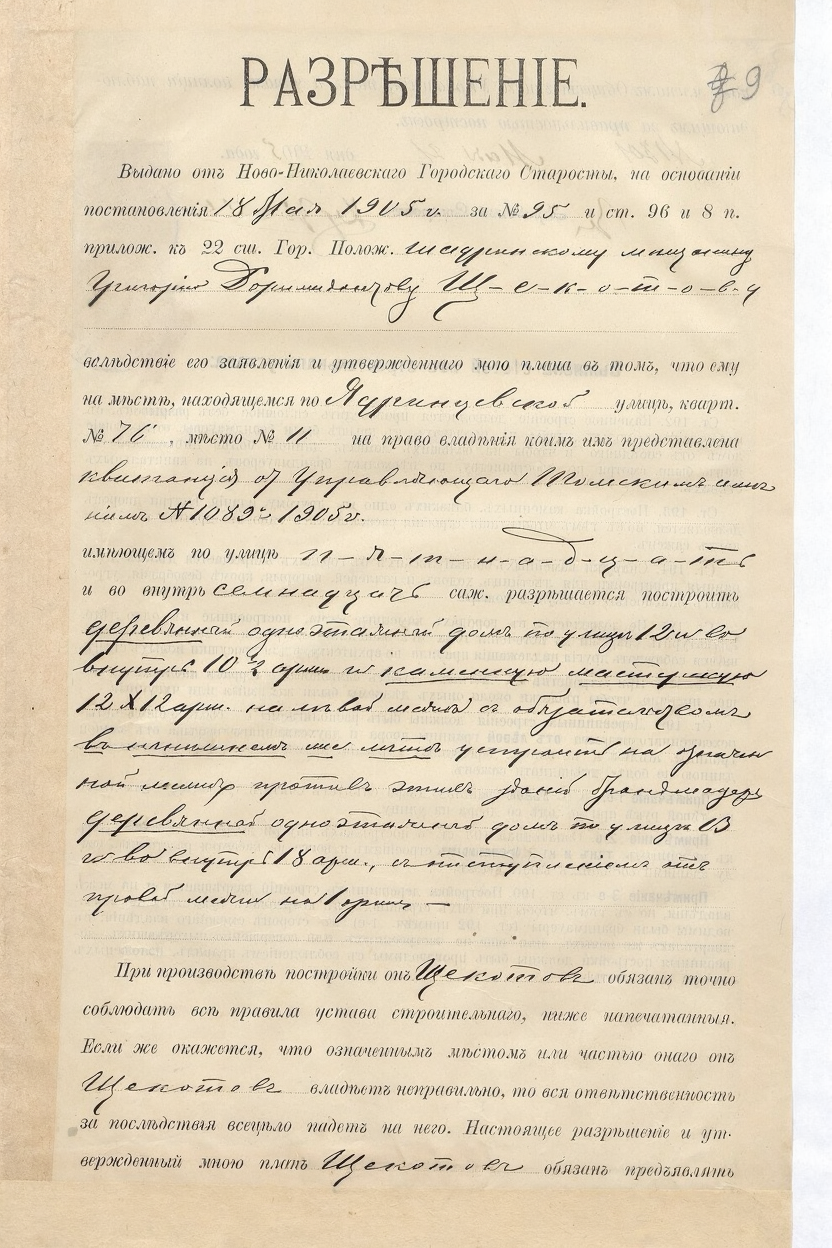 РАЗРѢШЕНІЕ.
9
Выдано отъ Ново-Николаевскаго Городскаго Старосты, на основаніи
постановленія 18 Мая 1905 г. за № 95 и ст. 96 и 8 п.
прилож. къ 22 ст. Гор. Полож. Шадринскому мѣщанину
Григорію Доримидонтову Щ-е-к-о-т-о-в-у
вслѣдствіе его заявленія и утвержденнаго мою плана въ томъ, что ему
на мѣстѣ, находящемся по Ядринцевской улицѣ, кварт.
№ 76, мѣсто № 11 на право владѣнія коимъ имъ представлена
квитанція отъ Управляющаго Томскимъ имѣ
ніемъ № 1089 1905 г.
имѣющемъ по улицѣ п-я-т-н-а-д-ц-а-ть
и во внутрь семнадцать саж. разрѣшается построить
деревянный одноэтажный домъ по улицѣ 12 и во
внутрь 10½ арш. и каменную мастерскую
12 X 12 арш. на лѣвой межѣ съ обязательствомъ
въ нынѣшнемъ же лѣтѣ устроить на означен
ной межѣ противъ этихъ зданій брандмауеръ
деревянной одноэтажный домъ по улицѣ 13
и во внутрь 18 арш., съ отступленіемъ отъ
правой межи на 1 аршинъ —
При производствѣ постройки онъ Щекотовъ обязанъ точно
соблюдать всѣ правила устава строительнаго, ниже напечатанныя.
Если же окажется, что означеннымъ мѣстомъ или частью онаго онъ
Щекотовъ владѣетъ неправильно, то вся отвѣтственность
за послѣдствія всецѣло падетъ на него. Настоящее разрѣшеніе и ут-
вержденный мною планъ Щекотовъ обязанъ предъявлять